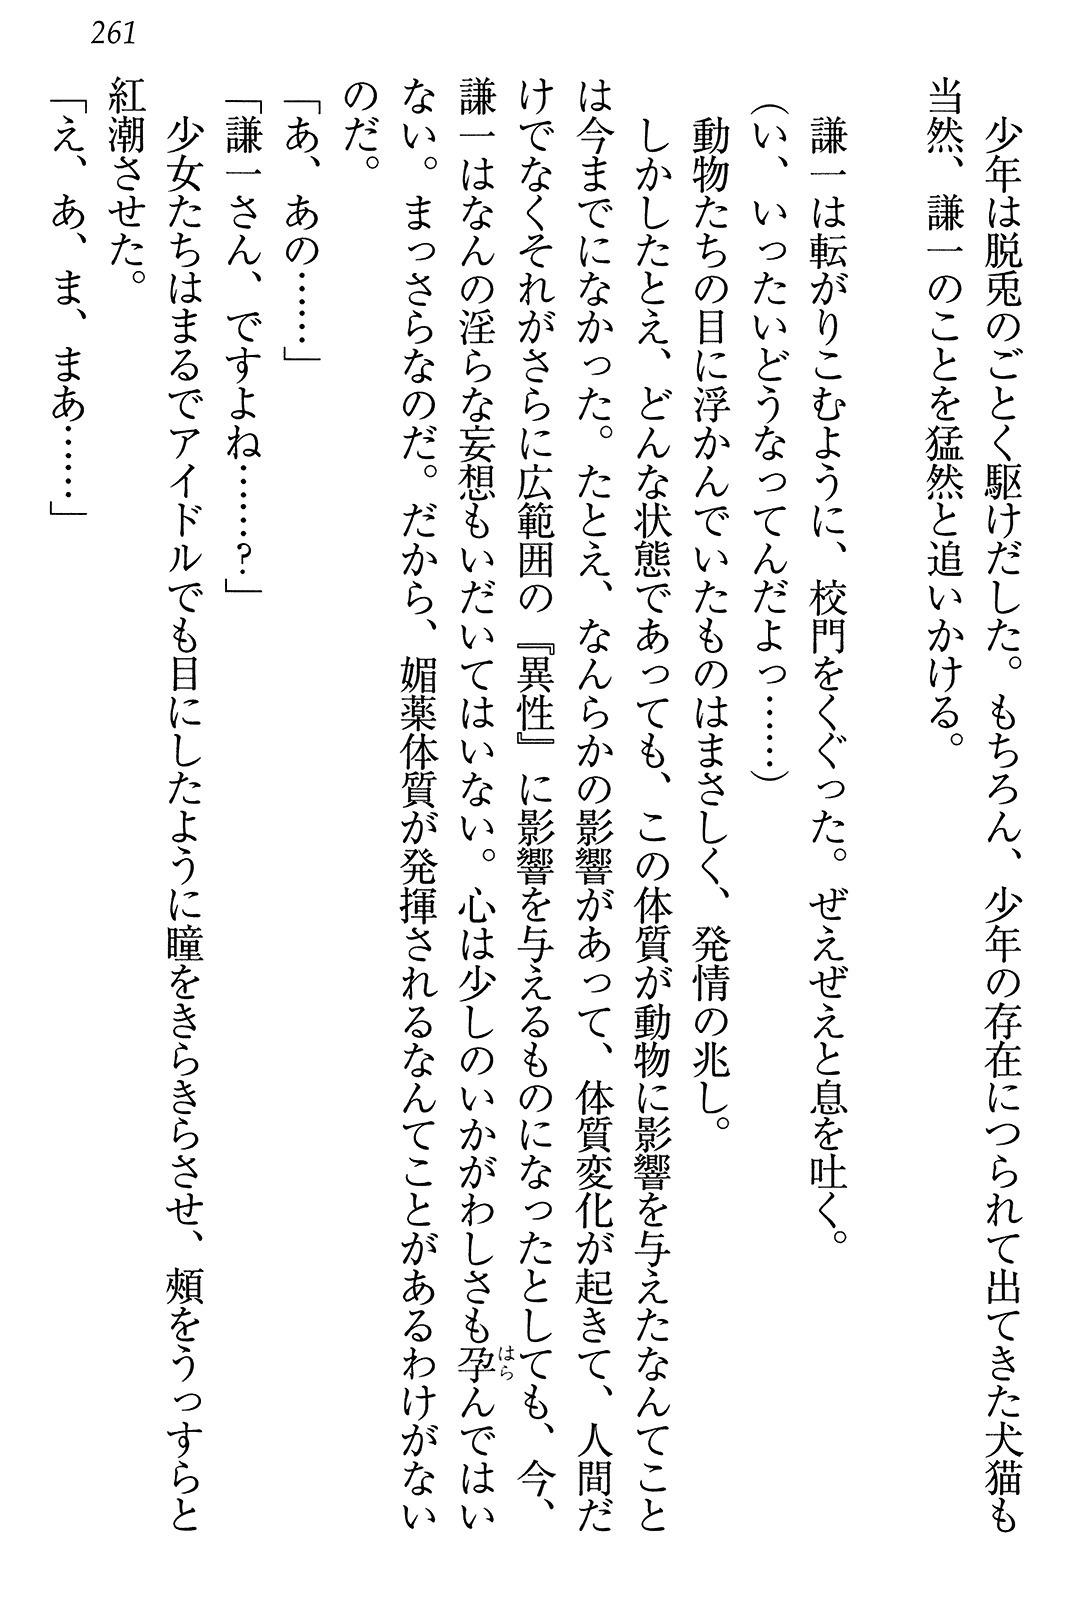 261
少年は脱兎のごとく駆けだした。もちろん、少年の存在につられて出てきた犬猫も
当然、謙一のことを猛然と追いかける。
謙一は転がりこむように、校門をくぐった。ぜえぜえと息を吐く。
(い、いったいどうなってんだよっ……)
動物たちの目に浮かんでいたものはまさしく、発情の兆し。
しかしたとえ、どんな状態であっても、この体質が動物に影響を与えたなんてこと
は今までになかった。たとえ、なんらかの影響があって、体質変化が起きて、人間だ
けでなくそれがさらに広範囲の『異性』に影響を与えるものになったとしても、今、
謙一はなんの淫らな妄想もいだいてはいない。心は少しのいかがわしさも孕んではい
はら
ない。まっさらなのだ。だから、媚薬体質が発揮されるなんてことがあるわけがない
のだ。
「あ、あの……」
「謙一さん、ですよね……?」
少女たちはまるでアイドルでも目にしたように瞳をきらきらさせ、頰をうっすらと
紅潮させた。
「え、あ、ま、まあ……」